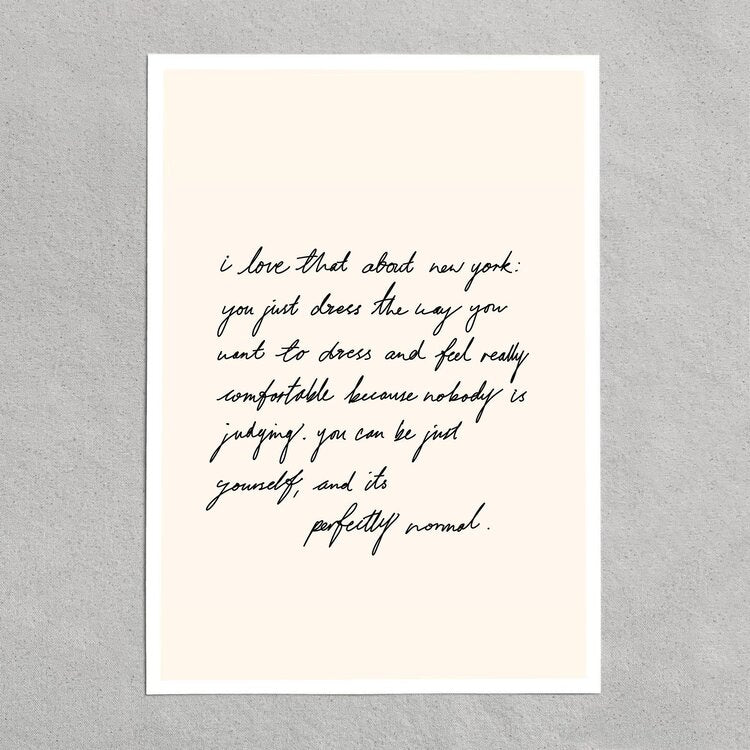 i love that about new york:
you just dress the way you
want to dress and feel really
comfortable because nobody is
judging. you can be just
yourself, and its
perfectly normal.